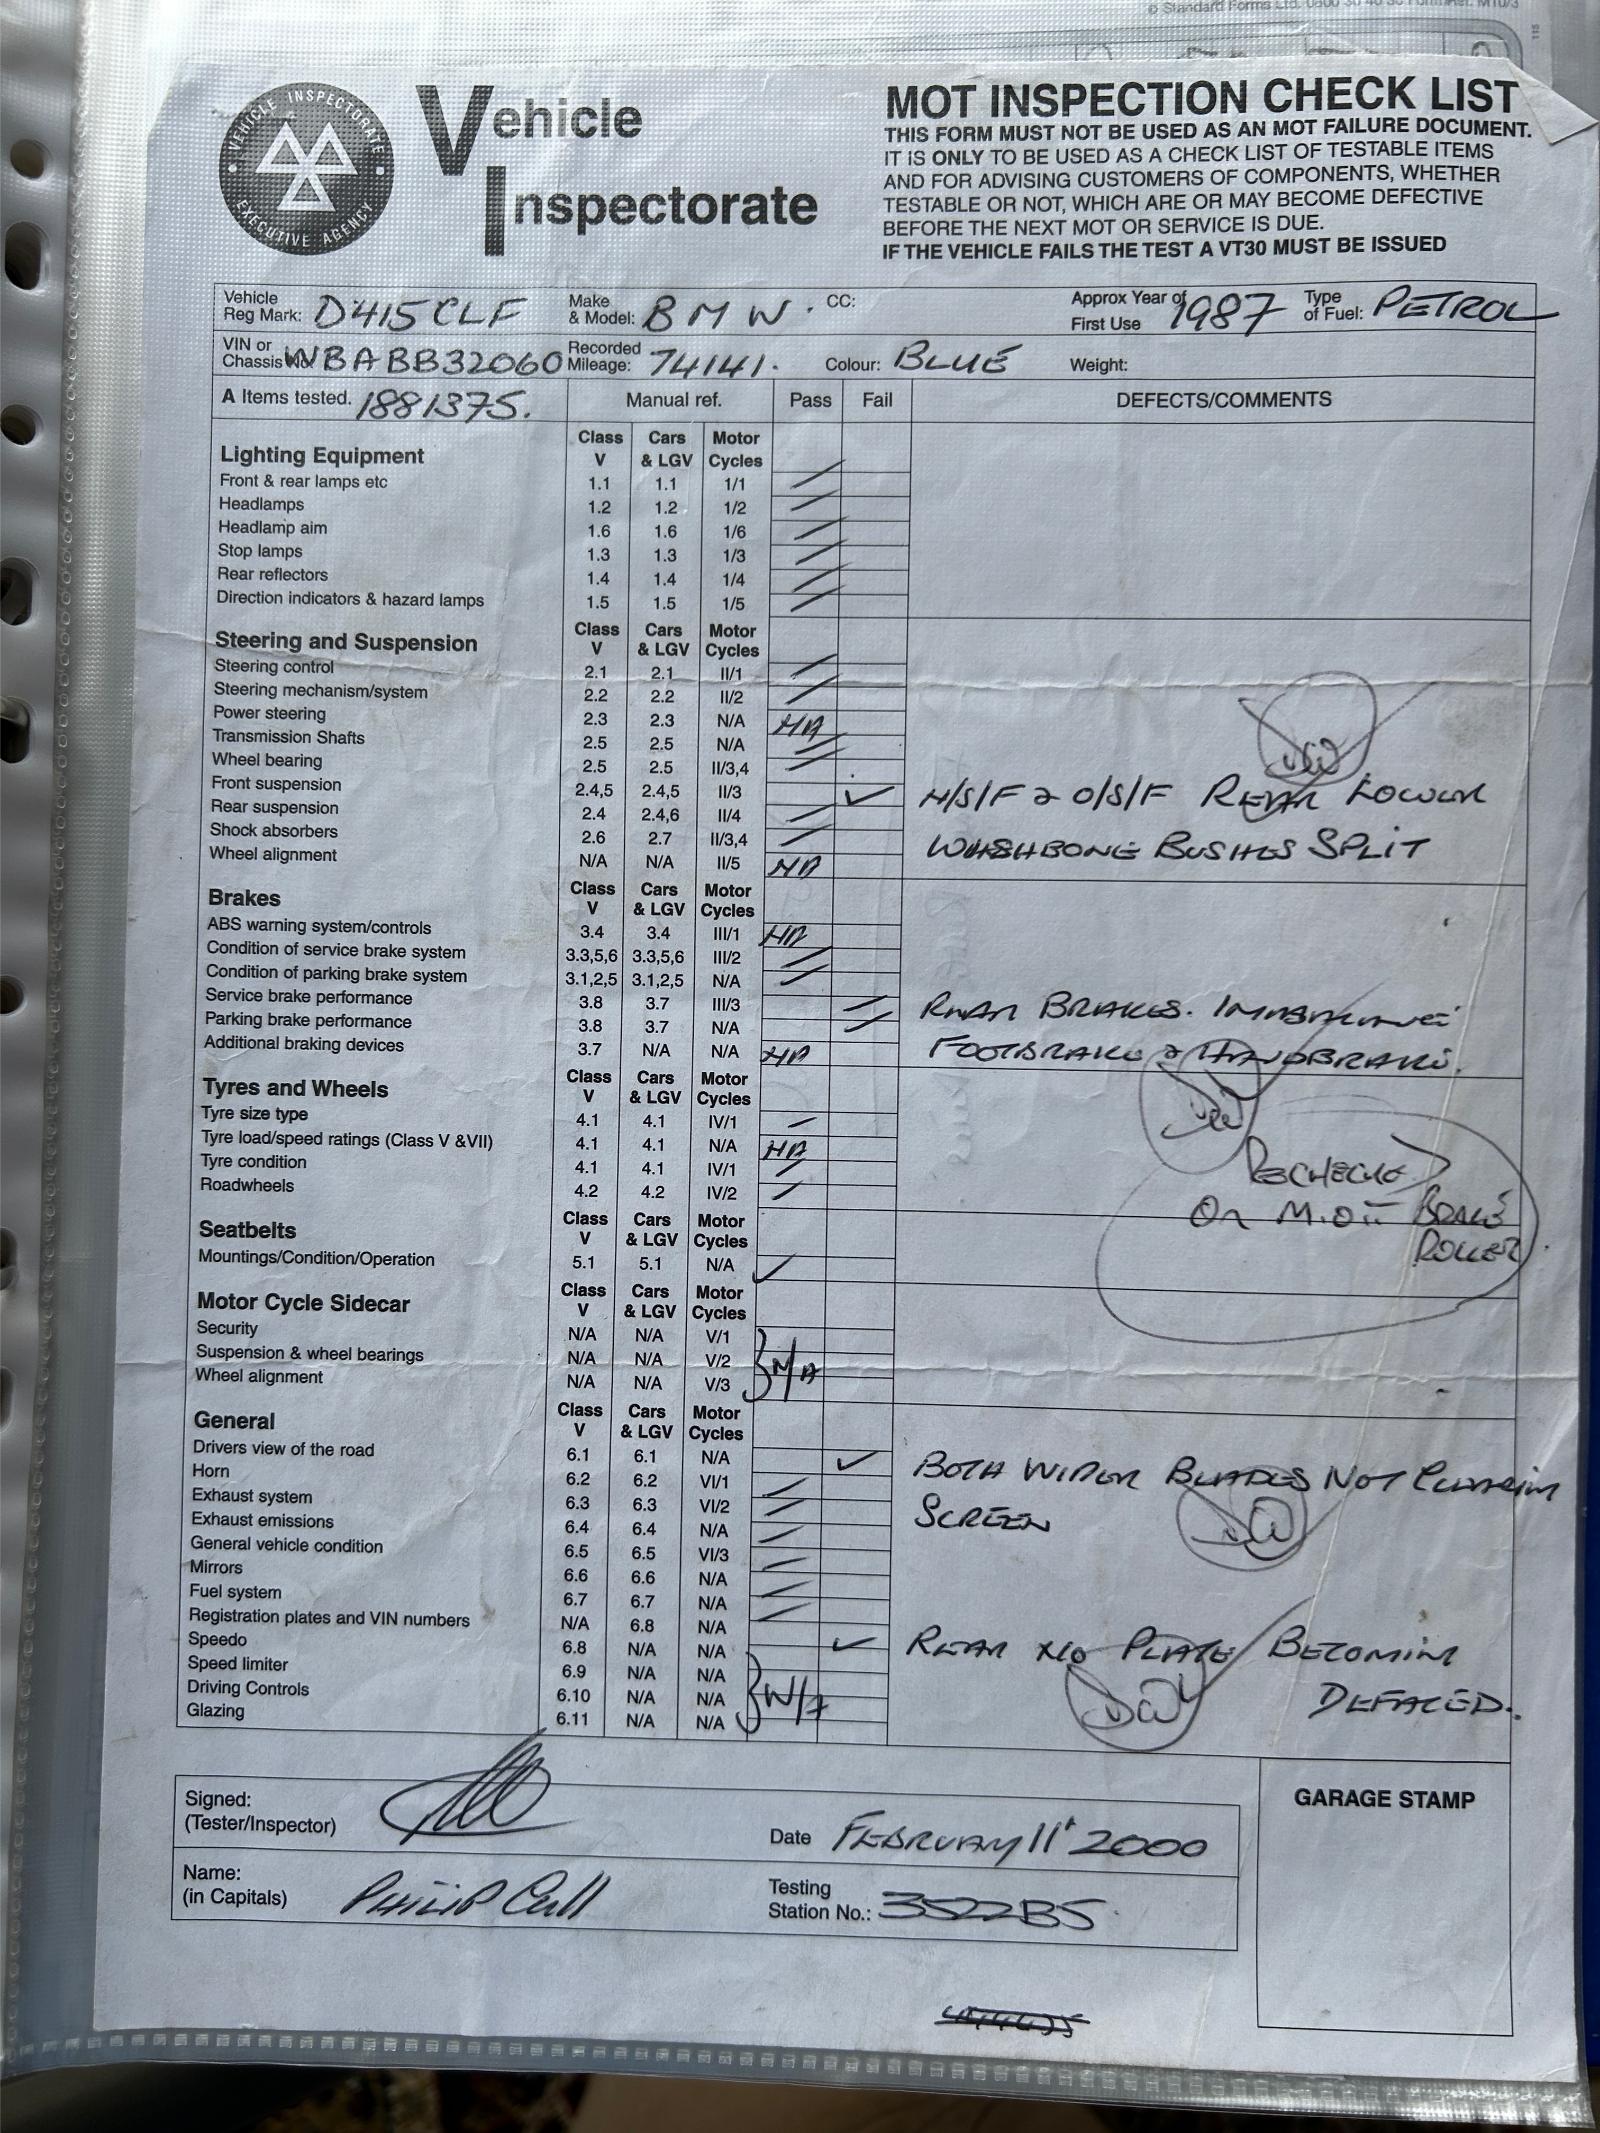 © Standard Forms Ltd. 0800 30 40 30 Form Ref. M10/3
115
VEHICLE INSPECTORATE
EXECUTIVE AGENCY
Vehicle
Inspectorate
MOT INSPECTION CHECK LIST
THIS FORM MUST NOT BE USED AS AN MOT FAILURE DOCUMENT.
IT IS ONLY TO BE USED AS A CHECK LIST OF TESTABLE ITEMS
AND FOR ADVISING CUSTOMERS OF COMPONENTS, WHETHER
TESTABLE OR NOT, WHICH ARE OR MAY BECOME DEFECTIVE
BEFORE THE NEXT MOT OR SERVICE IS DUE.
IF THE VEHICLE FAILS THE TEST A VT30 MUST BE ISSUED
Vehicle Reg Mark: D415CLF Make & Model: BMW. CC: Approx Year of First Use 1987 Type of Fuel: PETROL
VIN or Chassis No: WBABB32060 Recorded Mileage: 74141. Colour: BLUE Weight:
A Items tested. 1881375. Manual ref. Pass Fail DEFECTS/COMMENTS
Lighting Equipment Class V Cars & LGV Motor Cycles
Front & rear lamps etc 1.1 1.1 1/1
Headlamps 1.2 1.2 1/2
Headlamp aim 1.6 1.6 1/6
Stop lamps 1.3 1.3 1/3
Rear reflectors 1.4 1.4 1/4
Direction indicators & hazard lamps 1.5 1.5 1/5
Steering and Suspension Class V Cars & LGV Motor Cycles
Steering control 2.1 2.1 II/1
Steering mechanism/system 2.2 2.2 II/2
Power steering 2.3 2.3 N/A NA
Transmission Shafts 2.5 2.5 N/A
Wheel bearing 2.5 2.5 II/3,4
Front suspension 2.4,5 2.4,5 II/3 ✓ N/S/F & O/S/F REAR LOWER
Rear suspension 2.4 2.4,6 II/4
Shock absorbers 2.6 2.7 II/3,4 WISHBONE BUSHES SPLIT
Wheel alignment N/A N/A II/5 NA
Brakes Class V Cars & LGV Motor Cycles
ABS warning system/controls 3.4 3.4 III/1 NA
Condition of service brake system 3.3,5,6 3.3,5,6 III/2
Condition of parking brake system 3.1,2,5 3.1,2,5 N/A
Service brake performance 3.8 3.7 III/3 REAR BRAKES. IMBALANCE
Parking brake performance 3.8 3.7 N/A
Additional braking devices 3.7 N/A N/A NA FOOTBRAKE & HANDBRAKE.
Tyres and Wheels Class V Cars & LGV Motor Cycles
Tyre size type 4.1 4.1 IV/1
Tyre load/speed ratings (Class V &VII) 4.1 4.1 N/A NA
Tyre condition 4.1 4.1 IV/1 RECHECKED
Roadwheels 4.2 4.2 IV/2 ON M.O.T BRAKE
ROLLER
Seatbelts Class V Cars & LGV Motor Cycles
Mountings/Condition/Operation 5.1 5.1 N/A ✓
Motor Cycle Sidecar Class V Cars & LGV Motor Cycles
Security N/A N/A V/1
Suspension & wheel bearings N/A N/A V/2 N/A
Wheel alignment N/A N/A V/3
General Class V Cars & LGV Motor Cycles
Drivers view of the road 6.1 6.1 N/A ✓ BOTH WIPER BLADES NOT CLEARIN
Horn 6.2 6.2 VI/1
Exhaust system 6.3 6.3 VI/2 SCREEN
Exhaust emissions 6.4 6.4 N/A
General vehicle condition 6.5 6.5 VI/3
Mirrors 6.6 6.6 N/A
Fuel system 6.7 6.7 N/A
Registration plates and VIN numbers N/A 6.8 N/A ✓ REAR NO PLATE BECOMIN
Speedo 6.8 N/A N/A
Speed limiter 6.9 N/A N/A
Driving Controls 6.10 N/A N/A N/A DEFACED.
Glazing 6.11 N/A N/A
Signed: (Tester/Inspector) Date FEBRUARY 11 2000
Name: (in Capitals) PHILIP Cull Testing Station No.: 3522BS
GARAGE STAMP